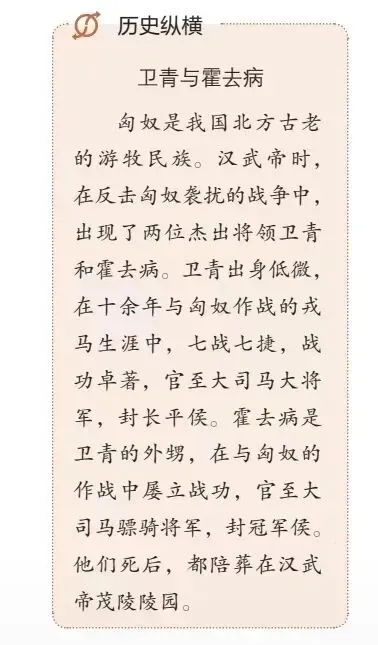 历史纵横
卫青与霍去病
匈奴是我国北方古老
的游牧民族。汉武帝时，
在反击匈奴袭扰的战争中，
出现了两位杰出将领卫青
和霍去病。卫青出身低微，
在十余年与匈奴作战的戎
马生涯中，七战七捷，战
功卓著，官至大司马大将
军，封长平侯。霍去病是
卫青的外甥，在与匈奴的
作战中屡立战功，官至大
司马骠骑将军，封冠军侯。
他们死后，都陪葬在汉武
帝茂陵陵园。